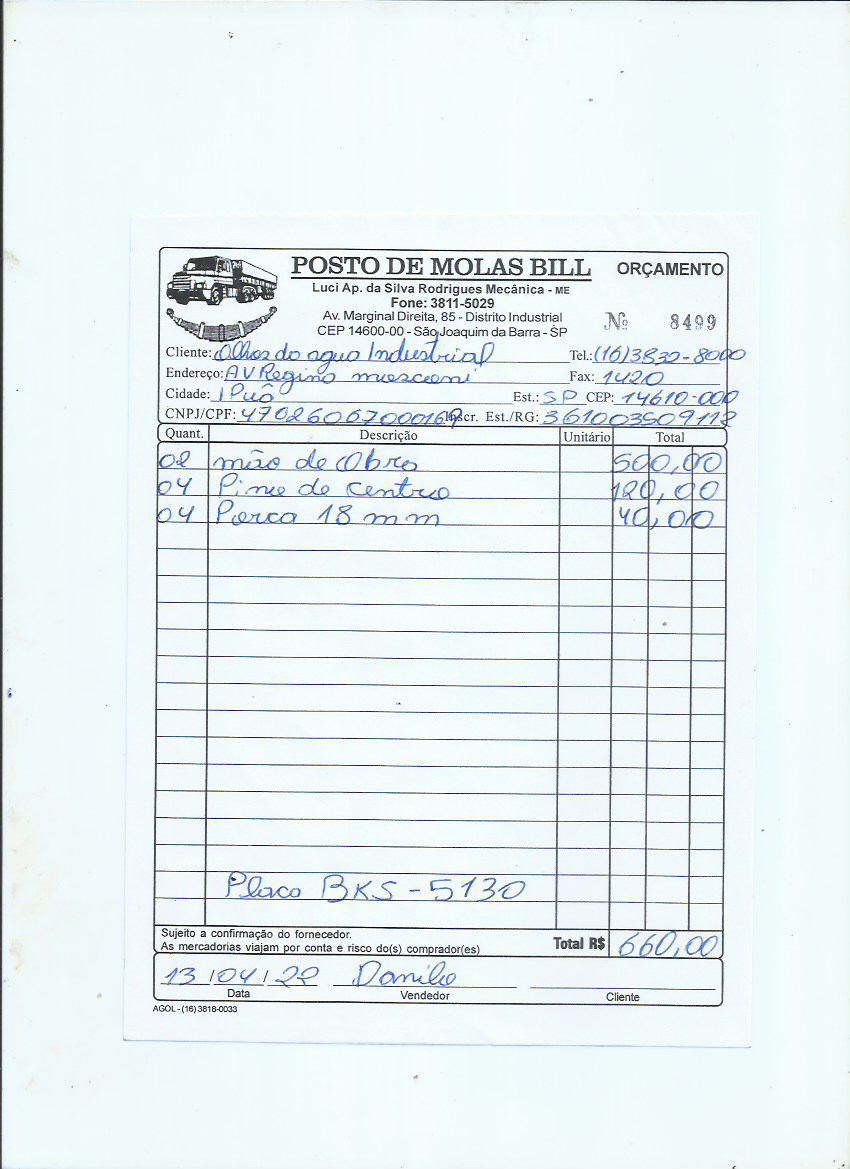 POSTO DE MOLAS BILL ORÇAMENTO
Luci Ap. da Silva Rodrigues Mecânica - ME
Fone: 3811-5029
Av. Marginal Direita, 85 - Distrito Industrial
CEP 14600-00 - São Joaquim da Barra - SP
Nº 8499
Cliente: Olhos do agua Industrial Tel.: (16)3830-8000
Endereço: AV Regina mosconi Fax: 1420
Cidade: I Puã Est.: SP CEP: 14610-000
CNPJ/CPF: 47026067000169 Inscr. Est./RG: 361003509112
Quant. Descrição Unitário Total
02 mão de Obra 500,00
04 Pino de centro 120,00
04 Porca 18 mm 40,00
Placa BKS - 5130
Sujeito a confirmação do fornecedor.
As mercadorias viajam por conta e risco do(s) comprador(es) Total R$ 660,00
13 / 04 / 22 Danilo
Data Vendedor Cliente
AGOL - (16) 3818-0033